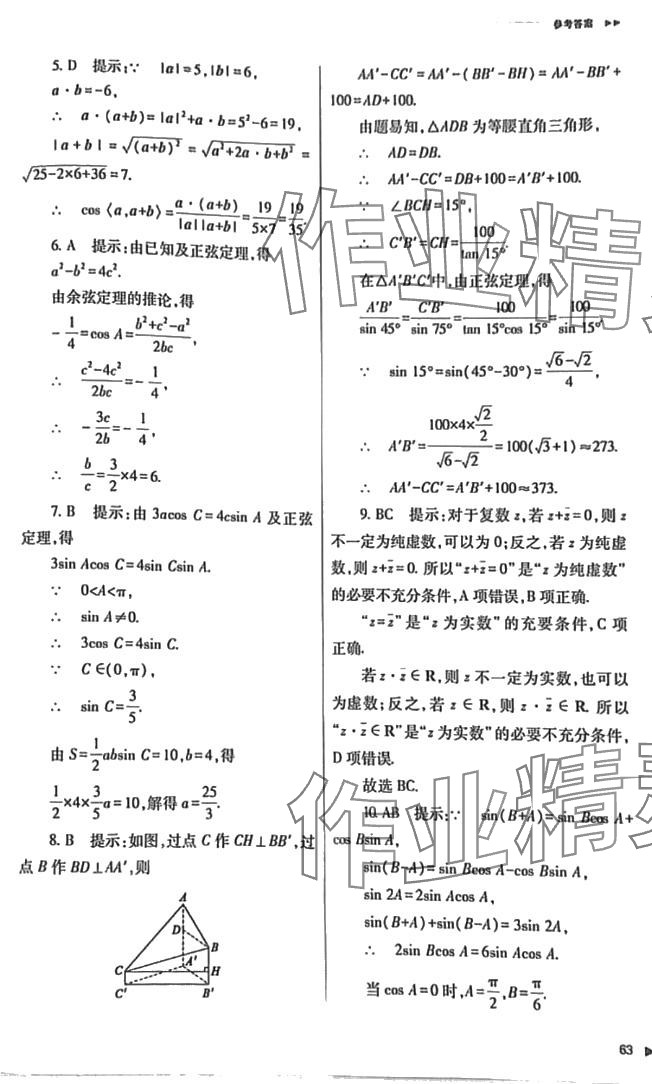 参考答案
5. D 提示:∵ |a|=5,|b|=6,
a·b=-6,
∴ a·(a+b)=|a|²+a·b=5²-6=19,
|a+b|=√(a+b)²=√a²+2a·b+b²=
√25-2×6+36=7.
∴ cos〈a,a+b〉=a·(a+b)/|a||a+b|=19/5×7=19/35.
6. A 提示:由已知及正弦定理,得
a²-b²=4c².
由余弦定理的推论,得
-1/4=cos A=b²+c²-a²/2bc,
∴ c²-4c²/2bc=-1/4,
∴ -3c/2b=-1/4,
∴ b/c=3/2×4=6.
7. B 提示:由 3acos C=4csin A 及正弦
定理,得
3sin Acos C=4sin Csin A.
∵ 0<A<π,
∴ sin A≠0.
∴ 3cos C=4sin C.
∵ C∈(0,π),
∴ sin C=3/5.
由 S=1/2absin C=10,b=4,得
1/2×4×3/5a=10,解得 a=25/3.
8. B 提示:如图,过点 C 作 CH⊥BB′,过
点 B 作 BD⊥AA′,则
A
D
B
A′
C
H
C′
B′
AA′-CC′=AA′-(BB′-BH)=AA′-BB′+
100=AD+100.
由题易知,△ADB 为等腰直角三角形,
∴ AD=DB.
∴ AA′-CC′=DB+100=A′B′+100.
∵ ∠BCH=15°,
∴ C′B′=CH=100/tan 15°.
在△A′B′C′中,由正弦定理,得
A′B′/sin 45°=C′B′/sin 75°=100/tan 15°cos 15°=100/sin 15°,
∵ sin 15°=sin(45°-30°)=√6-√2/4,
∴ A′B′=100×4×√2/2/√6-√2=100(√3+1)≈273.
∴ AA′-CC′=A′B′+100≈373.
9. BC 提示:对于复数 z,若 z+z̄=0,则 z
不一定为纯虚数,可以为 0;反之,若 z 为纯虚
数,则 z+z̄=0. 所以“z+z̄=0”是“z 为纯虚数”
的必要不充分条件,A 项错误,B 项正确.
“z=z̄”是“z 为实数”的充要条件,C 项
正确.
若 z·z̄∈R,则 z 不一定为实数,也可以
为虚数;反之,若 z∈R,则 z·z̄∈R. 所以
“z·z̄∈R”是“z 为实数”的必要不充分条件,
D 项错误.
故选 BC.
10. AB 提示:∵ sin(B+A)=sin Bcos A+
cos Bsin A,
sin(B-A)=sin Bcos A-cos Bsin A,
sin 2A=2sin Acos A,
sin(B+A)+sin(B-A)=3sin 2A,
∴ 2sin Bcos A=6sin Acos A.
当 cos A=0 时,A=π/2,B=π/6.
63
作业精灵
作业精灵